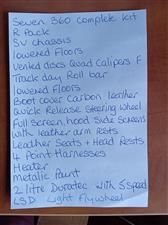 Seven 360 Complete kit
R Pack
SV Chassis
lowered Floors
Vented discs Quad Calipers F
Track day Roll bar
lowered Floors
Boot cover Carbon leather
Quick Release Steering Wheel
Full Screen hood Side Screens
With leather arm rests
Leather Seats + Head Rests
4 Point Harnesses
Heater
Metalic Paint
2 litre Duratec with 5 speed
LSD Light flywheel